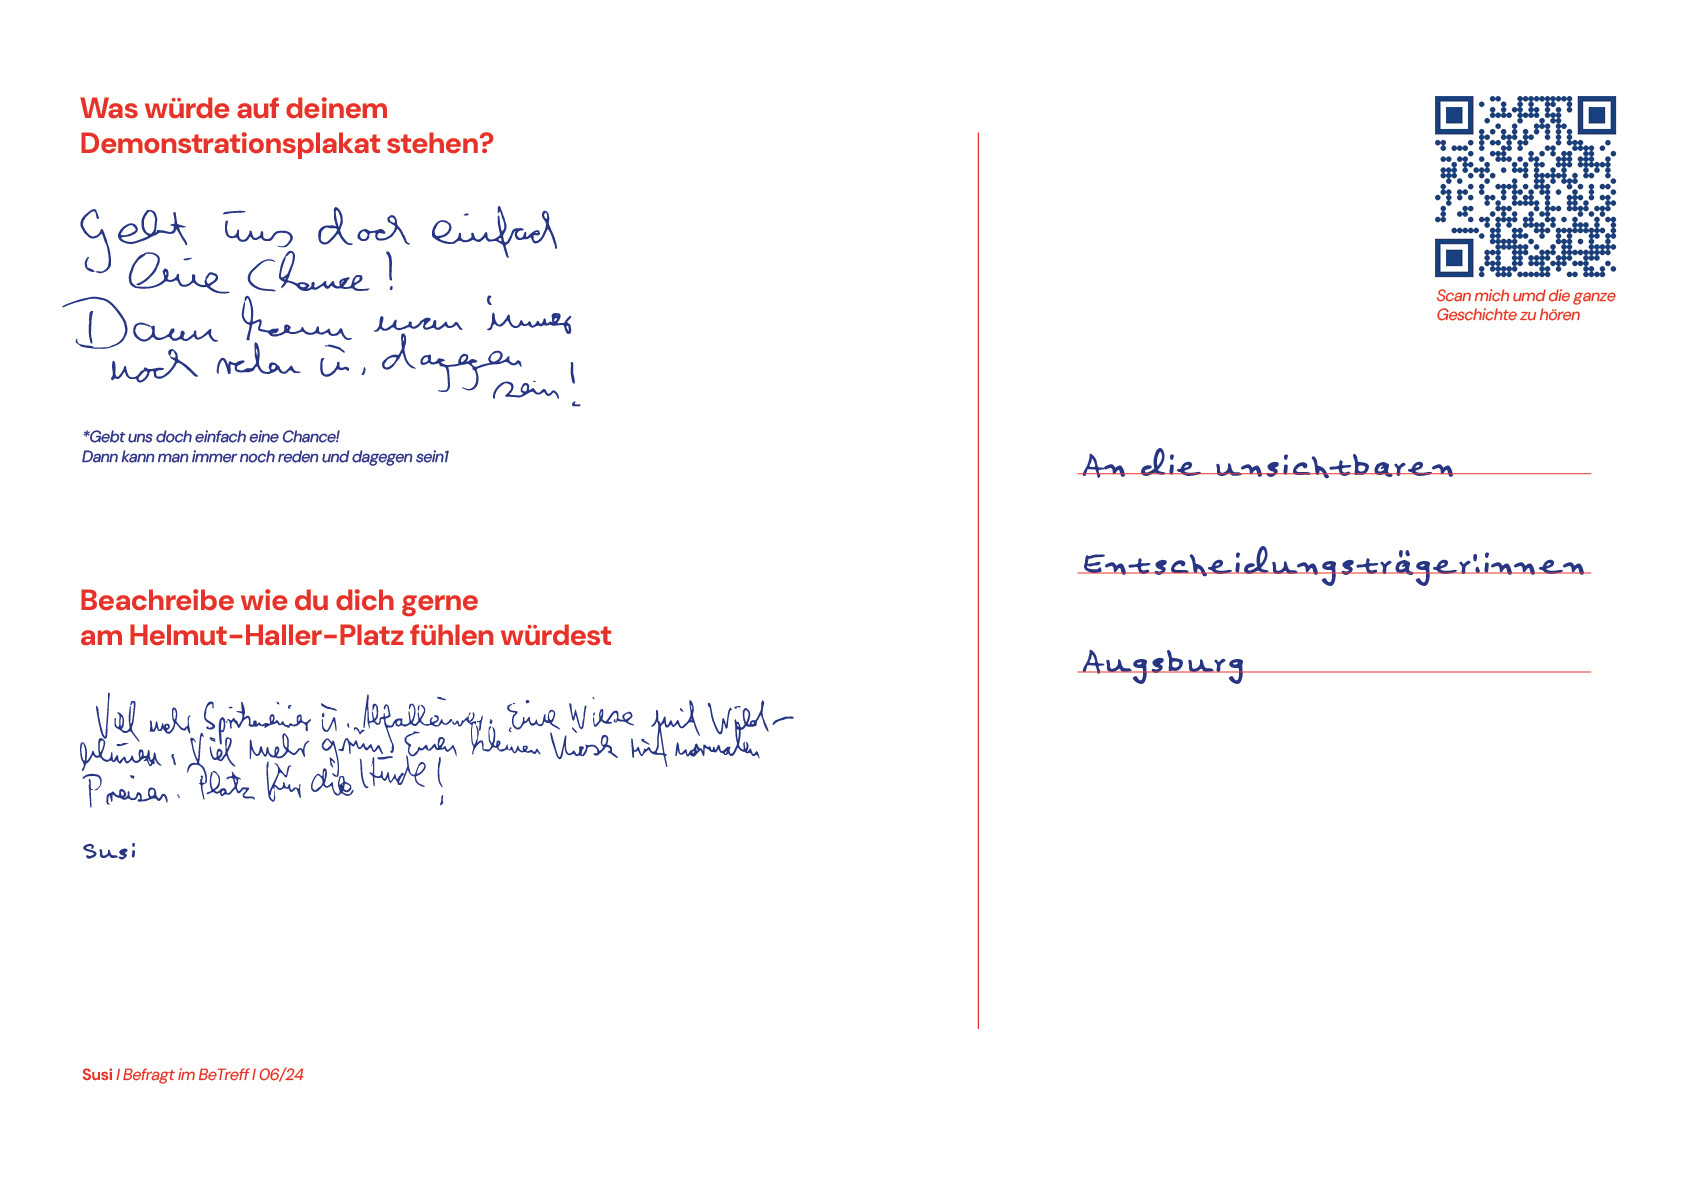 Was würde auf deinem
Demonstrationsplakat stehen?
Gebt uns doch einfach
eine Chance!
Dann kann man immer
noch reden u. dagegen
sein!
*Gebt uns doch einfach eine Chance!
Dann kann man immer noch reden und dagegen sein1
Beachreibe wie du dich gerne
am Helmut-Haller-Platz fühlen würdest
Viel mehr Spritzeneimer u. Abfalleimer. Eine Wiese mit Wild-
blumen, Viel mehr grün. Einen kleinen Kiosk mit normalen
Preisen. Platz für die Hunde!
Susi
Susi I Befragt im BeTreff I 06/24
Scan mich umd die ganze
Geschichte zu hören
An die unsichtbaren
Entscheidungsträger:innen
Augsburg